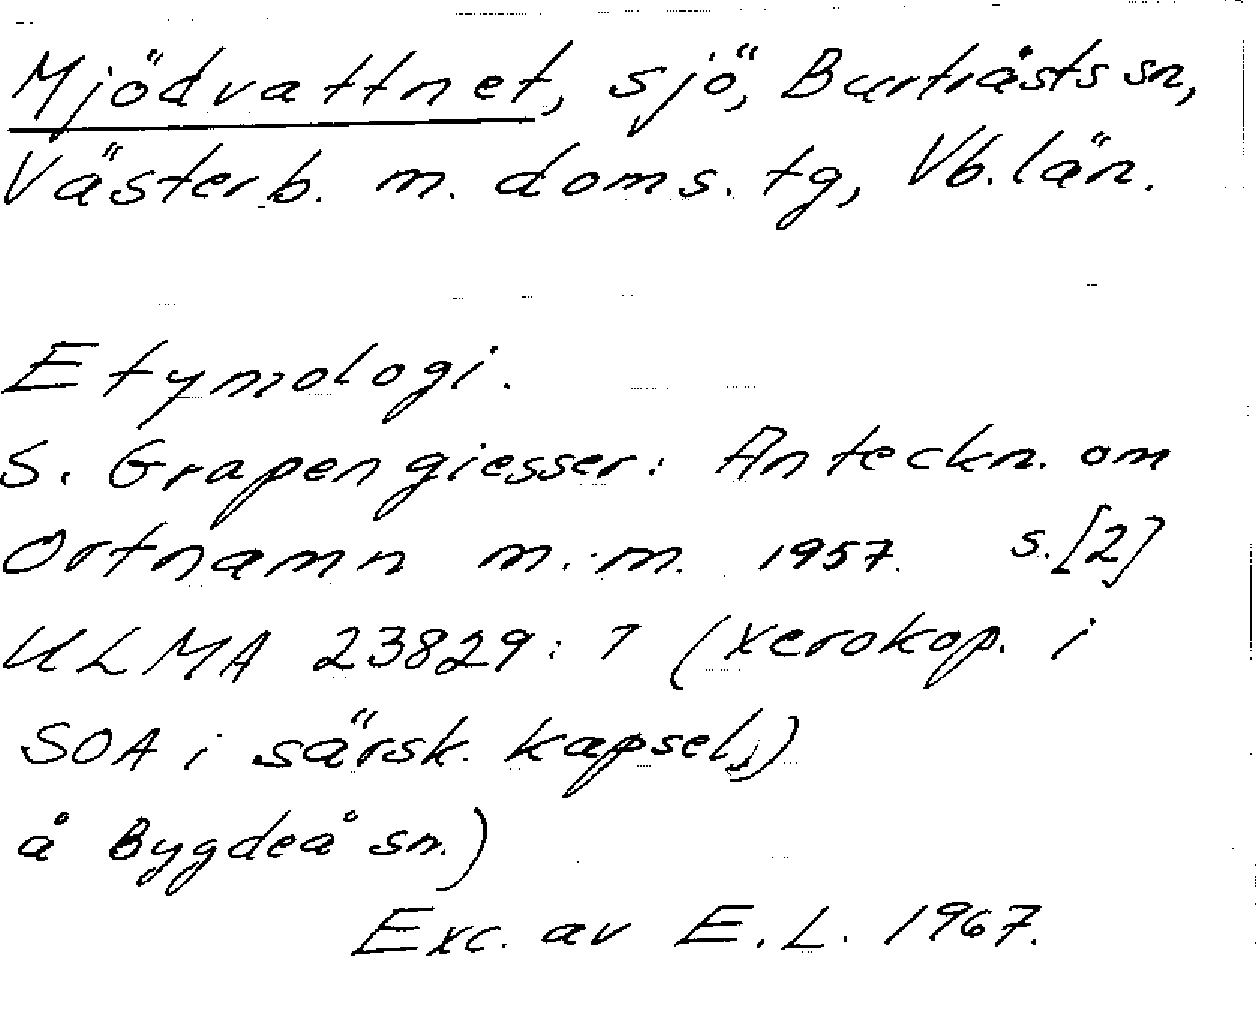 Mjödvattnet, sjö, Burträsks sn,
Västerb. m. doms. tg, Vb. län.
Etymologi.
S. Grapengiesser: Anteckn. om
Ortnamn m. m. 1957. s. [2]
ULMA 23829: 7 (xerokop. i
SOA i särsk. kapsel,)
å Bygdeå sn.)
Exc. av E. L. 1967.